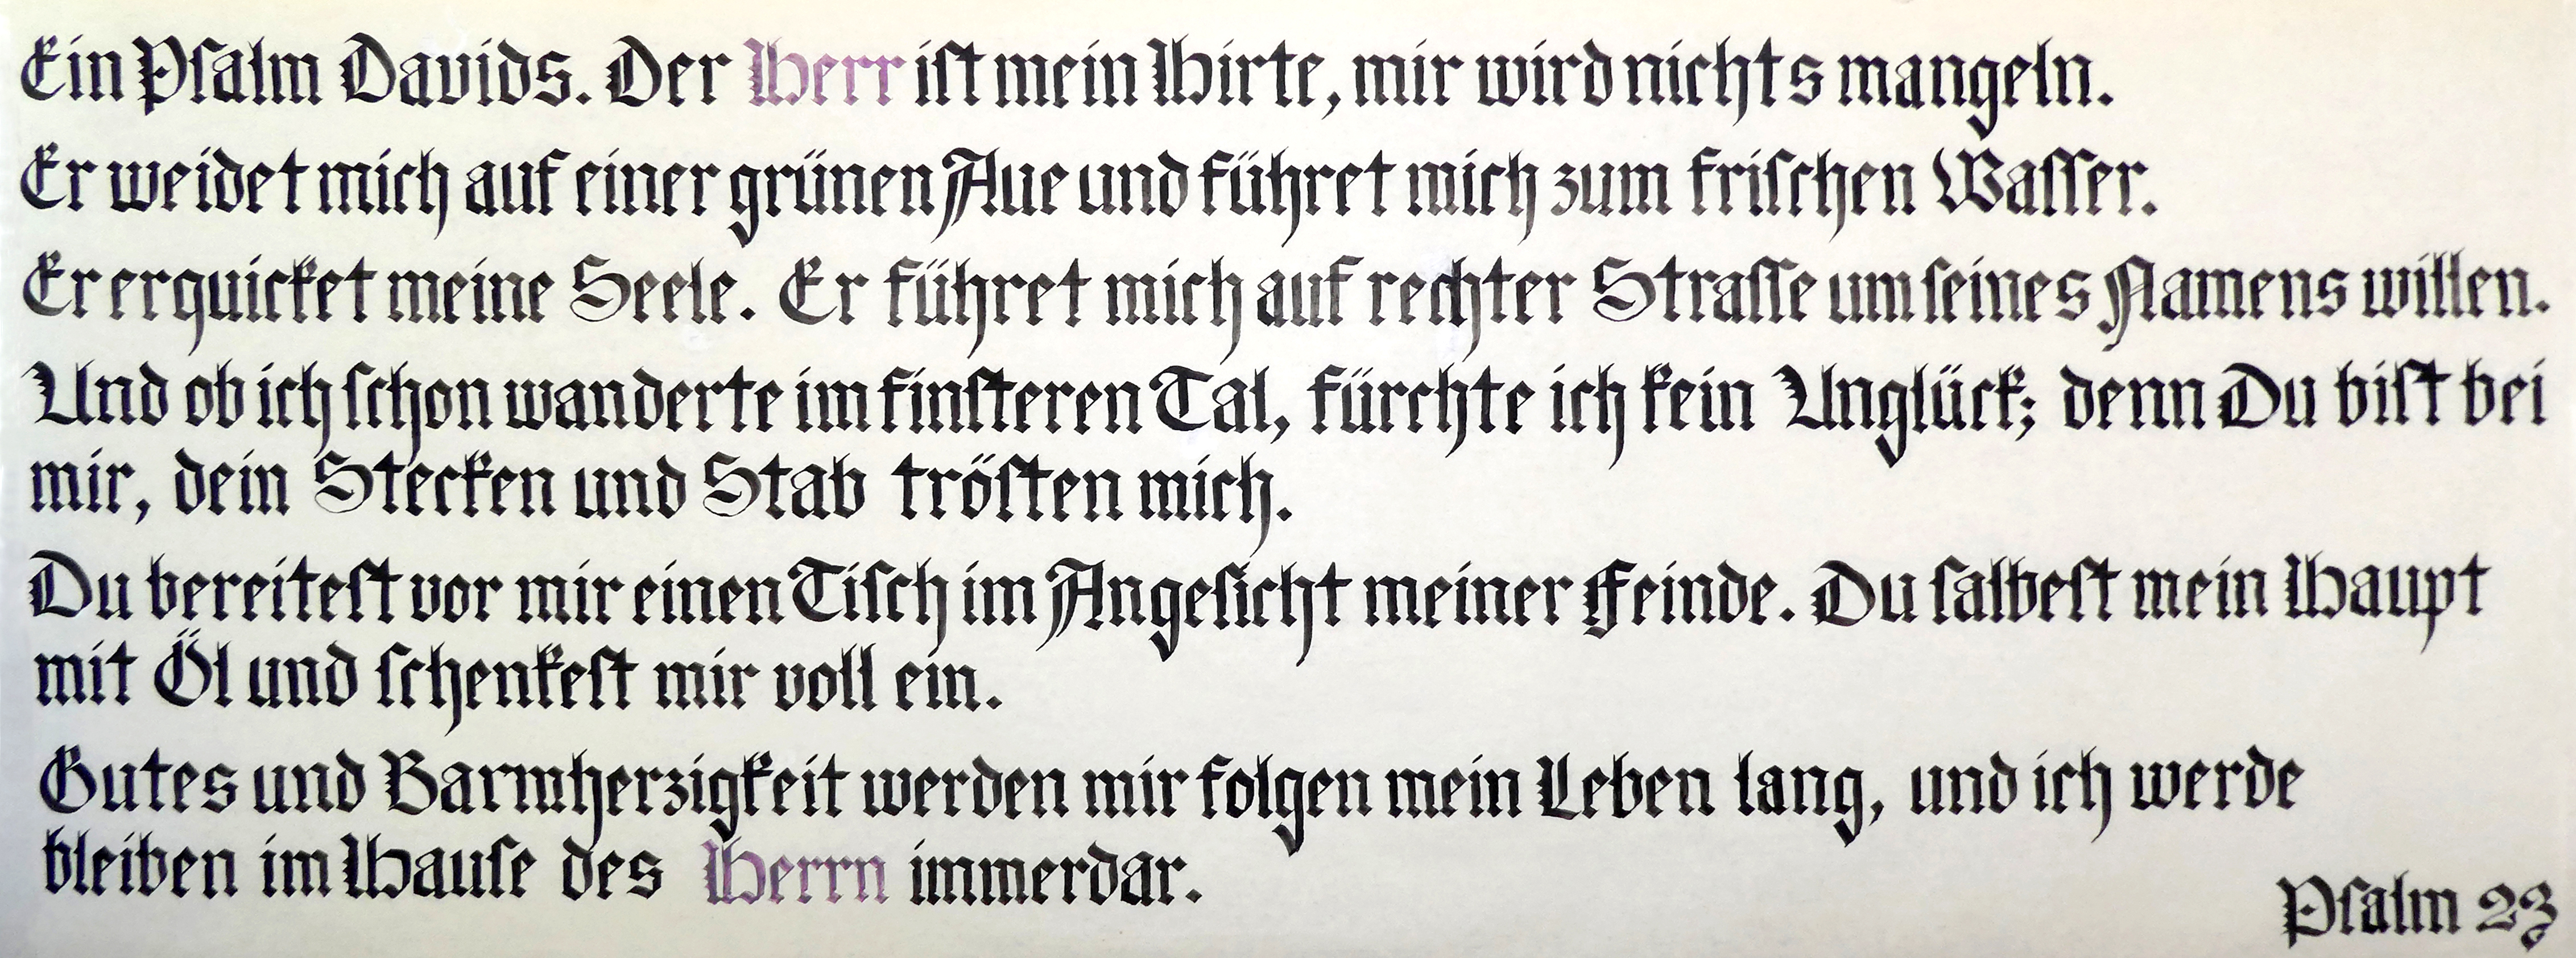 Ein Pſalm Davids. Der Herr iſt mein Hirte, mir wird nichts mangeln.
Er weidet mich auf einer grünen Aue und führet mich zum friſchen Waſſer.
Er erquicket meine Seele. Er führet mich auf rechter Straſſe um ſeines Namens willen.
Und ob ich ſchon wanderte im finſteren Tal, fürchte ich kein Unglück; denn Du biſt bei
mir, dein Stecken und Stab tröſten mich.
Du bereiteſt vor mir einen Tiſch im Angeſicht meiner Feinde. Du ſalbeſt mein Haupt
mit Öl und ſchenkeſt mir voll ein.
Gutes und Barmherzigkeit werden mir folgen mein Leben lang, und ich werde
bleiben im Hauſe des Herrn immerdar.
Pſalm 23